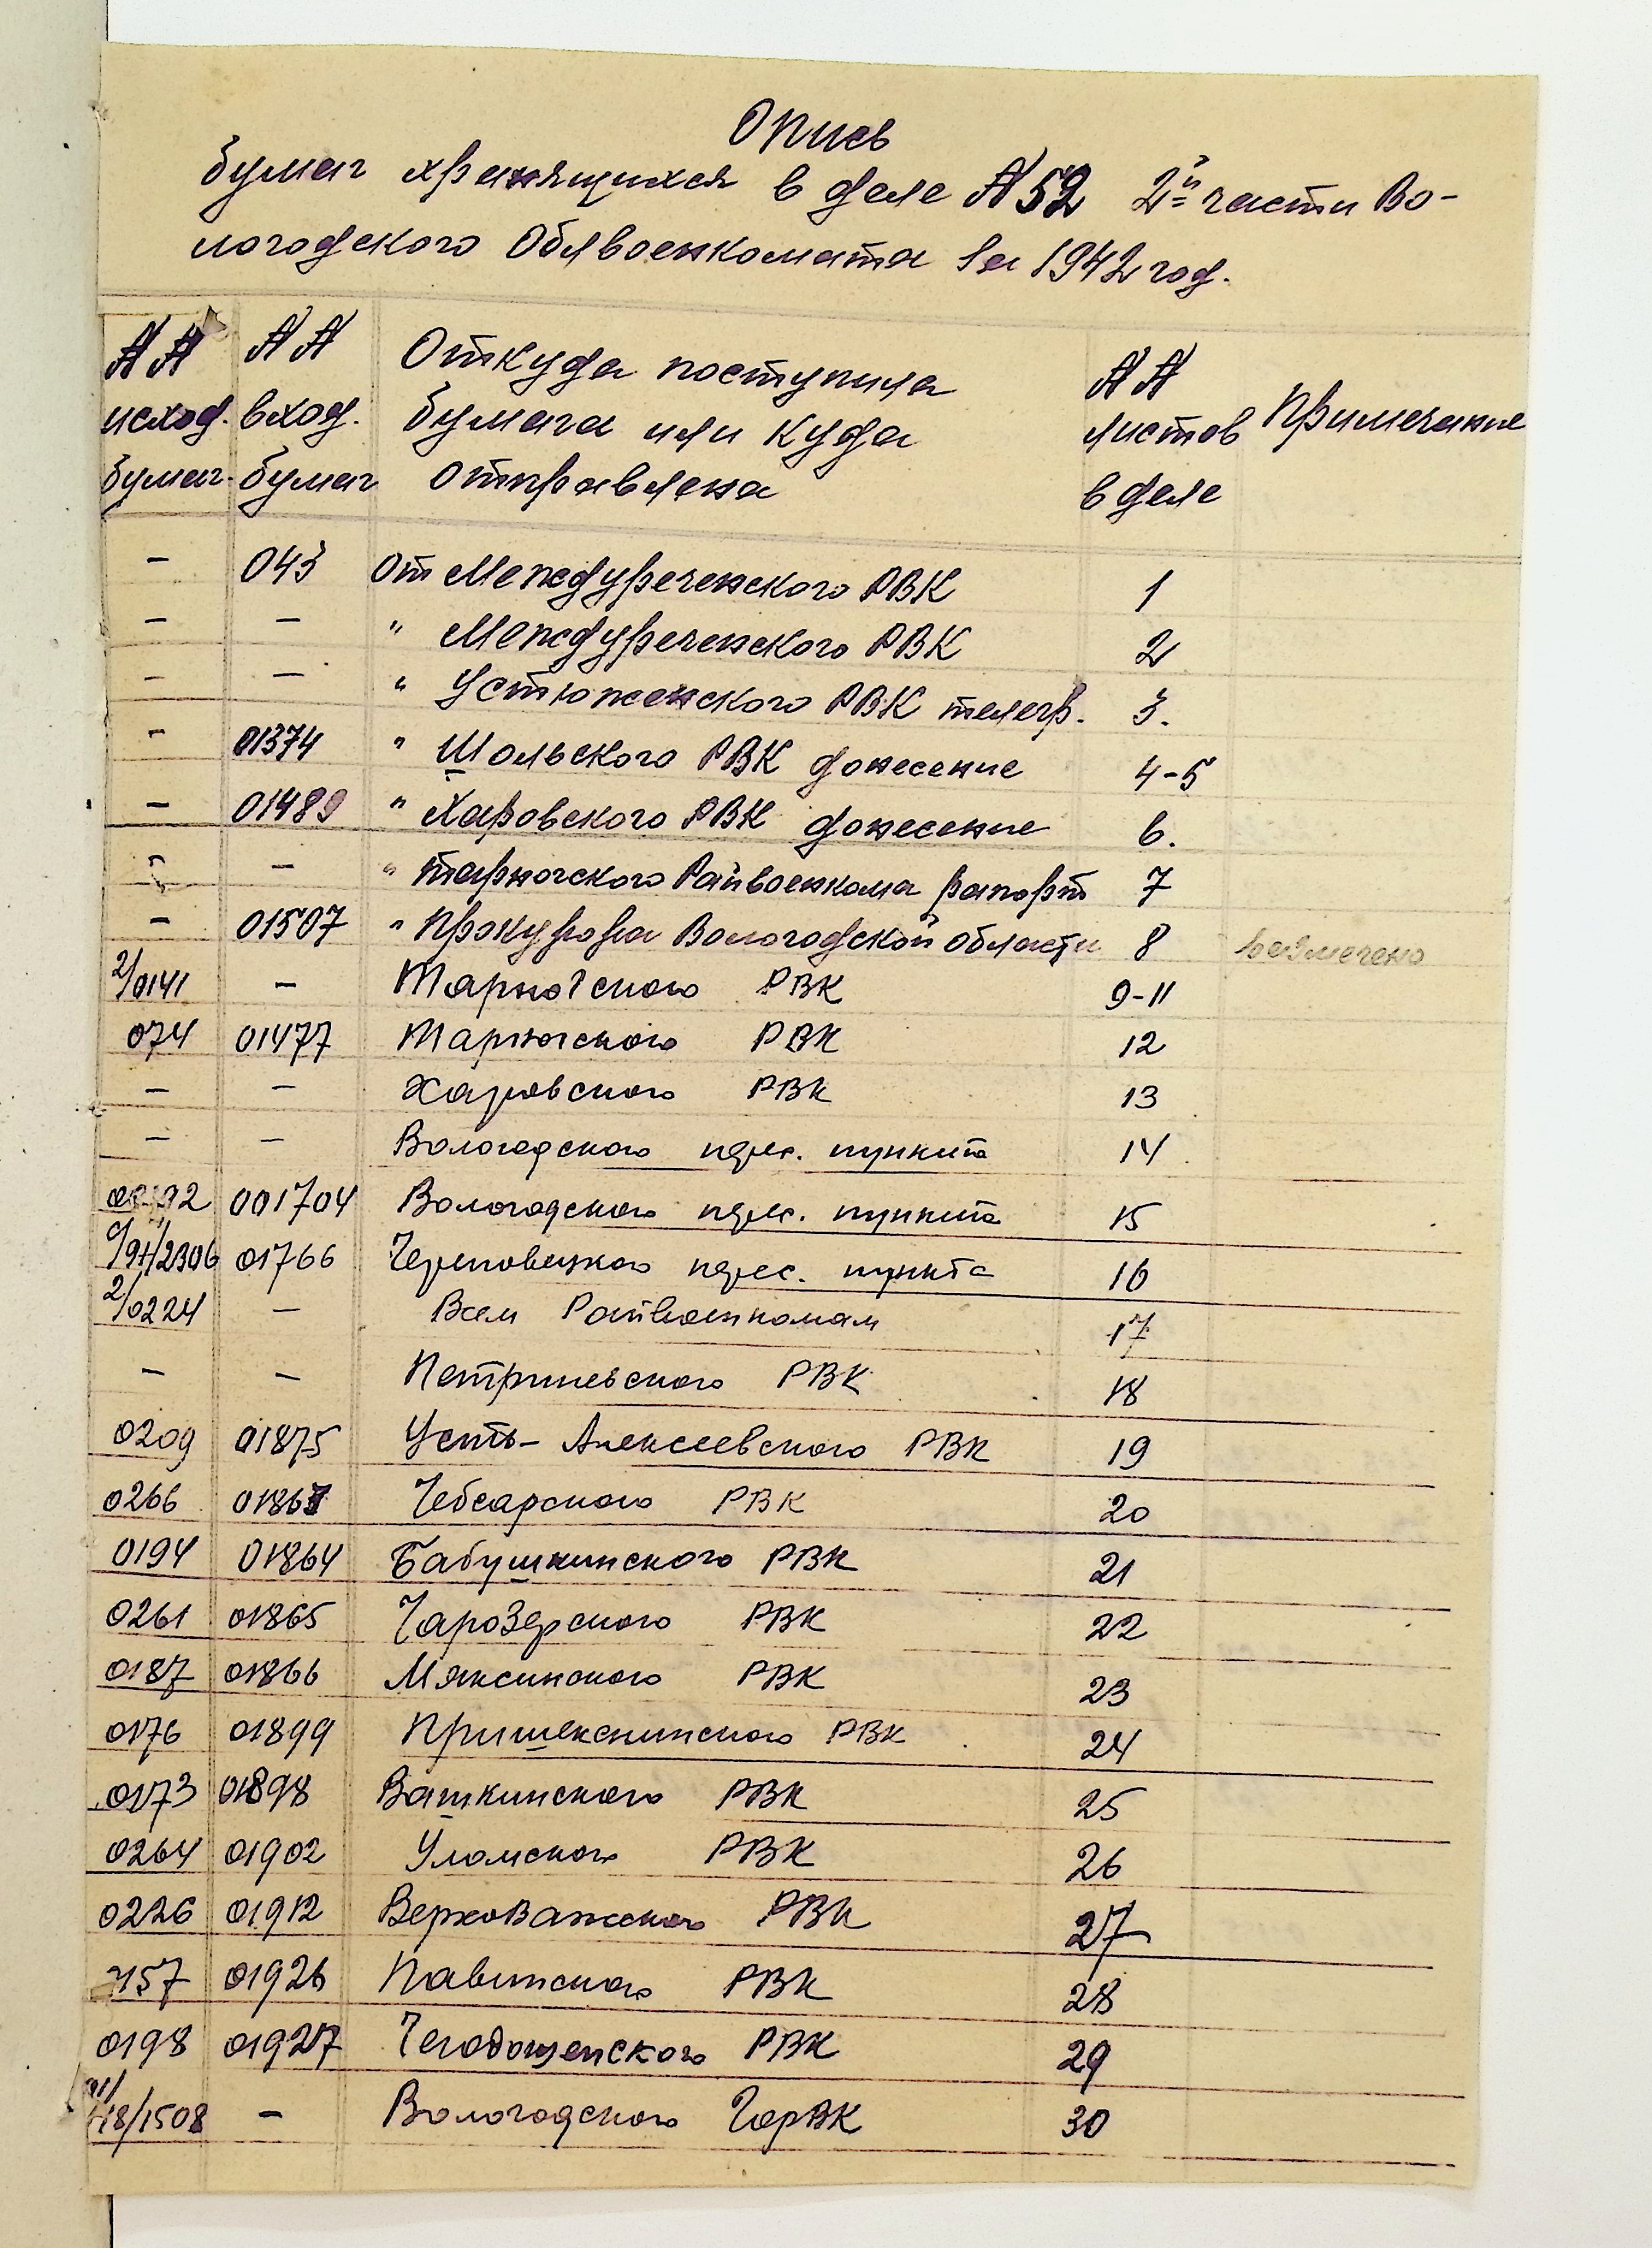 Опись
бумаг хранящихся в деле № 52 2й части Во-
логодского Облвоенкомата за 1942 год.
№ № исход. бумаг. № № вход. бумаг Откуда поступила бумага или куда отправлена № № листов в деле Примечание
- 043 От Междуреченского РВК 1
- - " Междуреченского РВК 2
- - " Устюженского РВК телегр. 3.
- 01374 " Шольского РВК донесение 4-5
- 01489 " Харовского РВК донесение 6.
- - " Тарногского Райвоенкома рапорт 7
- 01507 " Прокурора Вологодской области 8
2/0141 - Тарногского РВК 9-11
074 01477 Тарногского РВК 12
- - Харовского РВК 13
- - Вологодского перес. пункта 14
001704 Вологодского перес. пункта 15
01766 Череповецкого перес. пункта 16
2/0224 - Всем Райвоенкомам 17
- - Петриневского РВК 18
0209 01875 Усть-Алексеевского РВК 19
0266 01867 Чебсарского РВК 20
0194 01864 Бабушкинского РВК 21
0261 01865 Чарозерского РВК 22
0187 01866 Мяксинского РВК 23
0176 01899 Пришекснинского РВК 24
0173 01898 Вашкинского РВК 25
0264 01902 Уломского РВК 26
0226 01912 Верховажского РВК 27
01926 Павинского РВК 28
0198 01927 Чегодощенского РВК 29
- Вологодского ГорВК 30